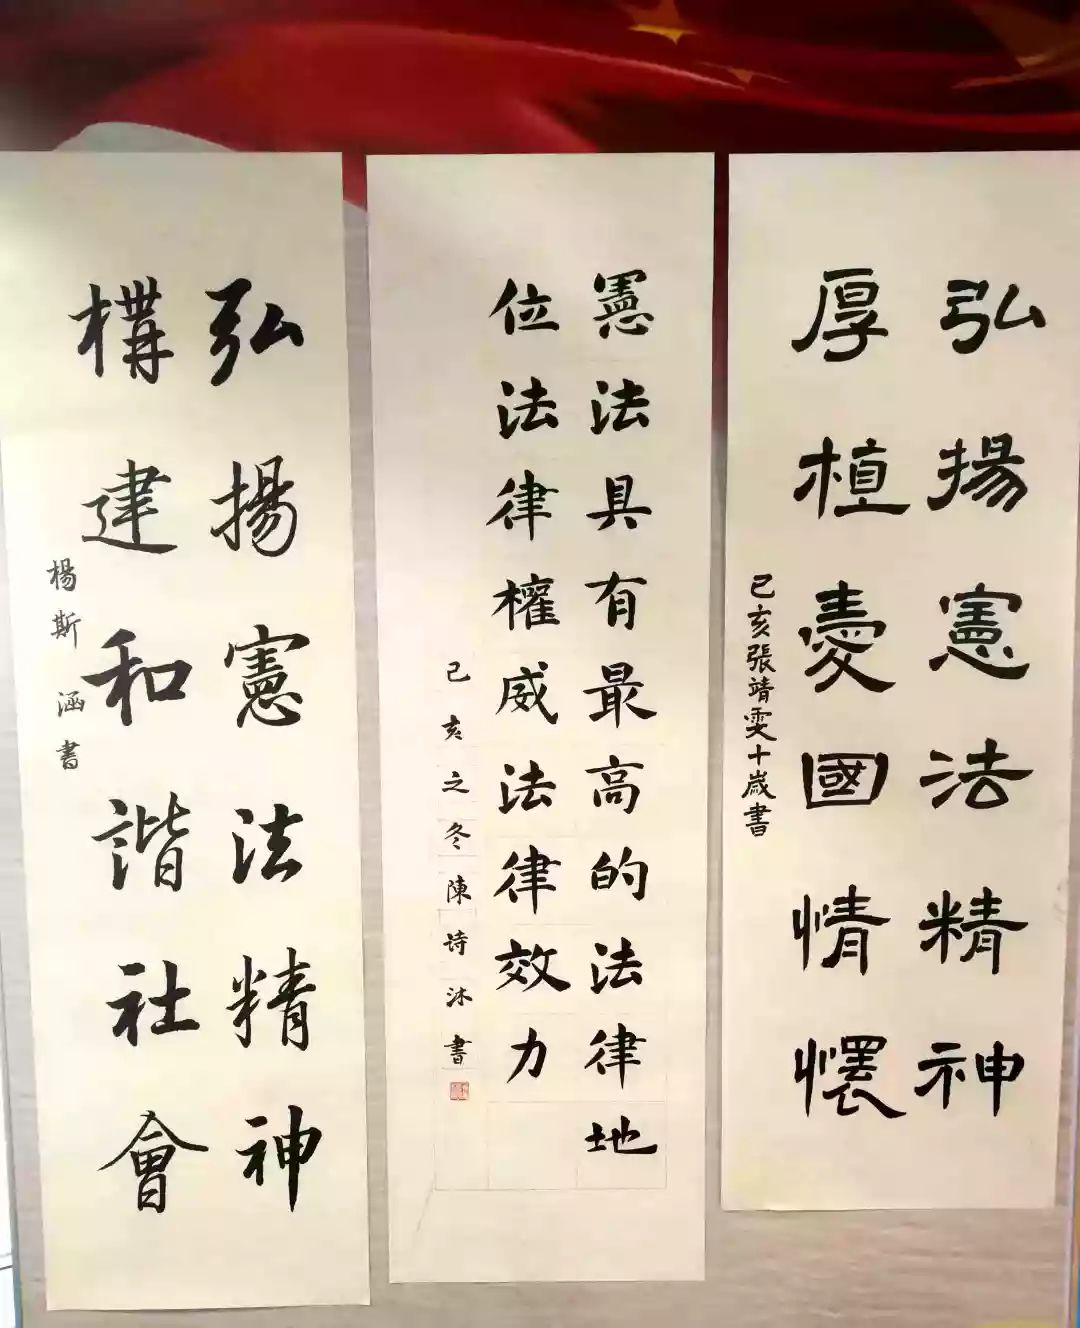 弘揚憲法精神
厚植憂國情懷
己亥張靖雯十歲書
憲法具有最高的法律地
位法律權威法律效力
己亥之冬陳诗沐書
弘揚憲法精神
構建和諧社會
楊斯涵書